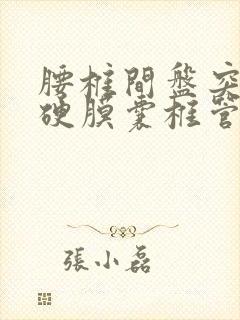 腰椎間盤突
硬膜囊椎管
張小磊